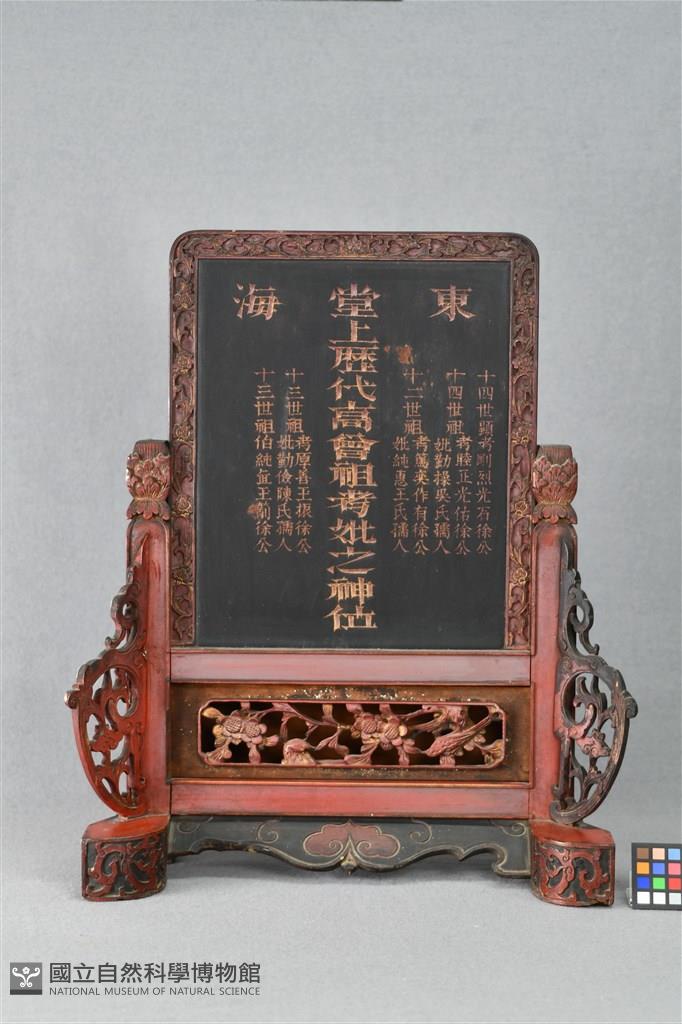 東海
堂上歴代高曾祖考妣之神位
十四世顯考剛烈光石徐公
十四世祖考睦正光佑徐公
妣勤操吳氏孺人
十二世祖考篤奕作有徐公
妣純惠王氏孺人
十三世祖考原善王振徐公
妣勤儉陳氏孺人
十三世祖伯純直王前徐公
國立自然科學博物館
NATIONAL MUSEUM OF NATURAL SCIENCE